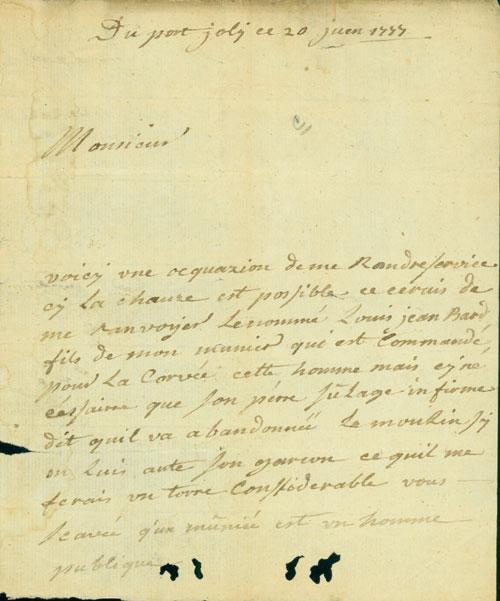 Du port joly ce 20 juin 1777
Monsieur
voicy une ocquazion de me Randre service
cy La chauze est possible ce cerais de
me Ranvoyer Le nommé Louis jean Bard
fils de mon munier qui est Commandé
pour La Corvée cette homme mais cy né
cessairre que son pére
infirme
dit quil va abandonnéé Le moulin sy
on Luis aute son garcon ce quil me
ferais un torre Considerable vous
scavéé q'un munié est un homme
publique